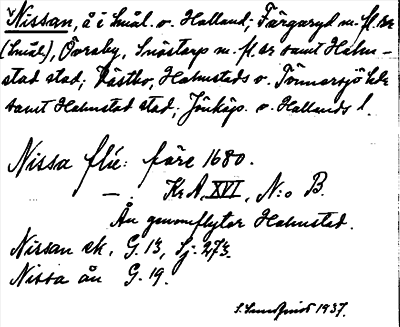 Nissan, å i Smål. o. Halland; Färgaryd m. fl. snr
(Smål), Övraby, Snöstorp m. fl. snr samt Halm-
stad stad; Västbo, Halmstads o. Tönnersjö hdr
samt Halmstad stad; Jönköp. o. Hallands l.
Nissa flú: före 1680.
— KrA, XVI, N:o B.
Ån genomflyter Halmstad.
Nissan ek, G. 13, Sj: 273.
Nissa ån G. 19.
S. Sundqvist 1937.